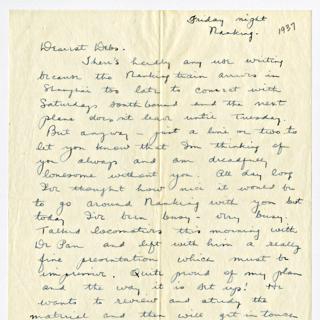 Friday night
Nanking.
1937
Dearest Debs.
There's hardly any use writing
because the Nanking train arrives in
Shanghai too late to connect with
Saturdays southbound and the next
plane doesn't leave until Tuesday.
But anyway - just a line or two to
let you know that I'm thinking of
you always and am dreadfully
lonesome without you. All day long
I've thought how nice it would be
to go around Nanking with you but
today I've been busy - very busy.
Talked locomotives this morning with
Dr Pan and left with him a really
fine presentation which must be
impressive. Quite proud of my plan
and the way it is set up! He
wants to review and study the
material and then will get in touch